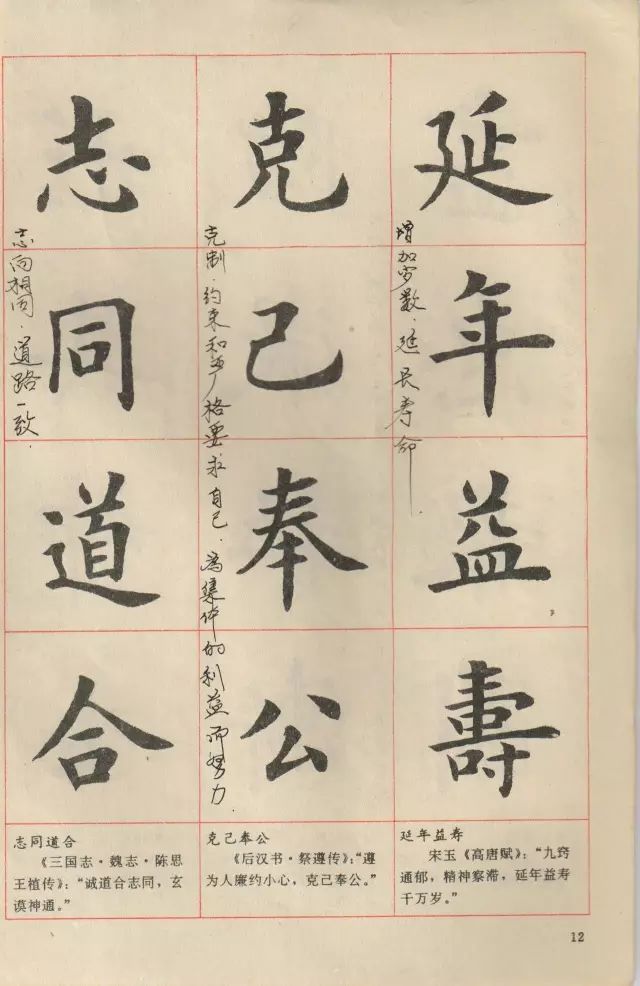 延年益壽
增加岁数.延长寿命
克己奉公
克制.约束和严格要求自己.为集体的利益而努力
志同道合
志向相同.道路一致.
延年益寿
宋玉《高唐赋》：“九窍
通郁，精神察滞，延年益寿
千万岁。”
克己奉公
《后汉书·祭遵传》：“遵
为人廉约小心，克己奉公。”
志同道合
《三国志·魏志·陈思
王植传》：“诚道合志同，玄
谟神通。”
12